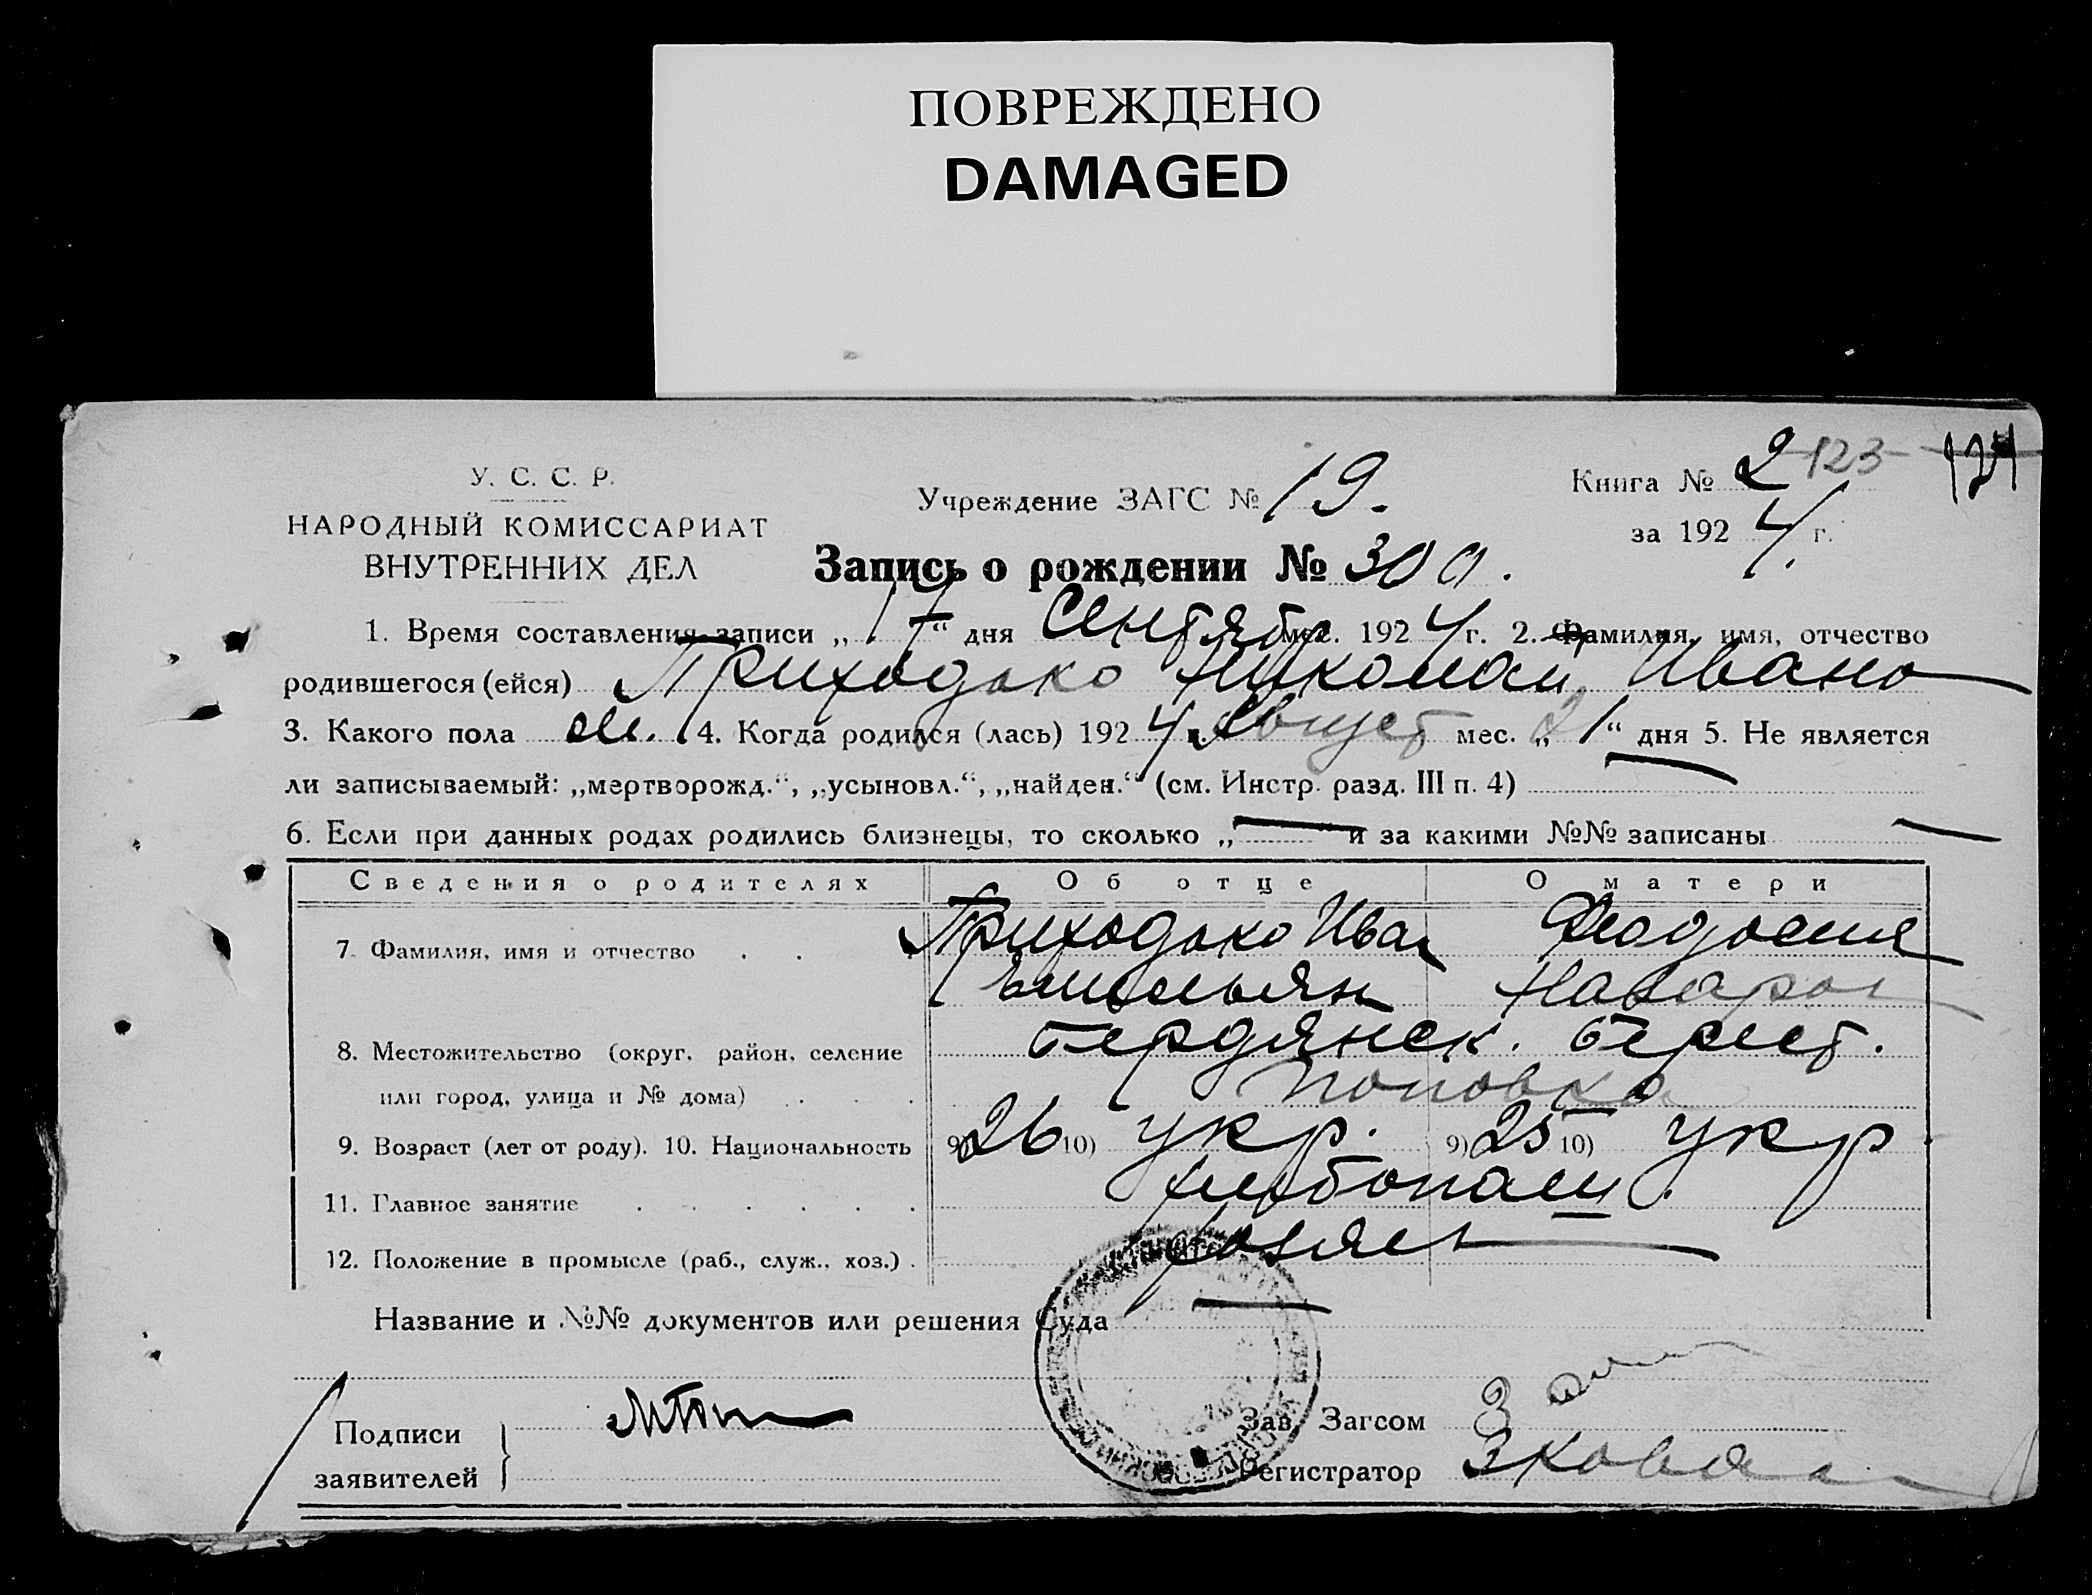 ПОВРЕЖДЕНО
DAMAGED
У. С. С. Р.
НАРОДНЫЙ КОМИССАРИАТ
ВНУТРЕННИХ ДЕЛ
Учреждение ЗАГС № 19.
Книга № 2 123 124
за 1924 г.
Запись о рождении № 300.
1. Время составления записи „17“ дня Сентябр мес. 1924 г. 2. Фамилия, имя, отчество
родившегося (ейся) Приходько Николай Ивано
3. Какого пола м. 4. Когда родился (лась) 1924 г. Август мес. „21“ дня 5. Не является
ли записываемый: „мертворожд.“, „усыновл.“, „найден.“ (см. Инстр. разд. III п. 4) —
6. Если при данных родах родились близнецы, то сколько „—“ и за какими №№ записаны —
Сведения о родителях Об отце О матери
7. Фамилия, имя и отчество . . Приходько Иван Феодосия
Емельян Назаров
8. Местожительство (округ, район, селение Бердянск. Берест.
или город, улица и № дома) . . . Поповка
9. Возраст (лет от роду). 10. Национальность 9) 26 10) укр. 9) 25 10) укр.
11. Главное занятие . . . . . . хлебопаш.
12. Положение в промысле (раб., служ., хоз.) . хозяев
Название и №№ документов или решения Суда —
Подписи
заявителей
Зав. Загсом
Регистратор